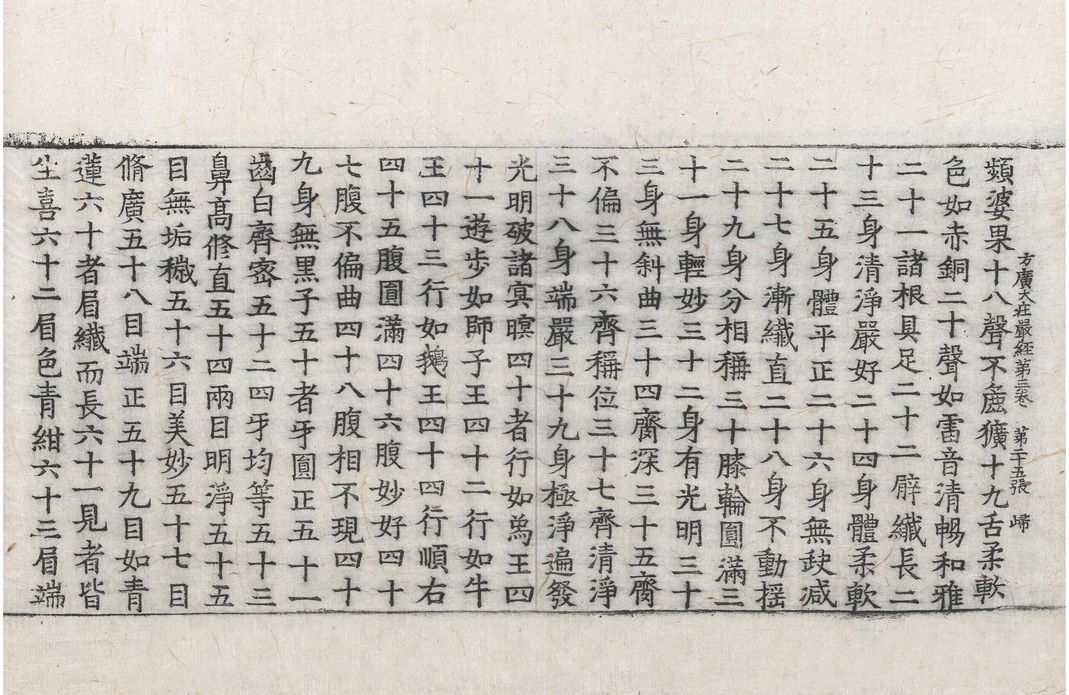 頻婆果十八聲不麁獷十九舌柔軟
方廣大莊嚴經第三卷 第二十五張 歸
色如赤銅二十聲如雷音清暢和雅
二十一諸根具足二十二臂纖長二
十三身清淨嚴好二十四身體柔軟
二十五身體平正二十六身無缺減
二十七身漸纖直二十八身不動搖
二十九身分相稱三十膝輪圓滿三
十一身輕妙三十二身有光明三十
三身無斜曲三十四齊深三十五齊
不偏三十六齊稱位三十七齊清淨
三十八身端嚴三十九身極淨遍發
光明破諸冥暝四十者行如象王四
十一遊步如師子王四十二行如牛
王四十三行如鵝王四十四行順右
四十五腹圓滿四十六腹妙好四十
七腹不偏曲四十八腹相不現四十
九身無黑子五十者牙圓正五十一
齒白齊密五十二四牙均等五十三
鼻高修直五十四兩目明淨五十五
目無垢穢五十六目美妙五十七目
脩廣五十八目端正五十九目如青
蓮六十者眉纖而長六十一見者皆
生喜六十二眉色青紺六十三眉端